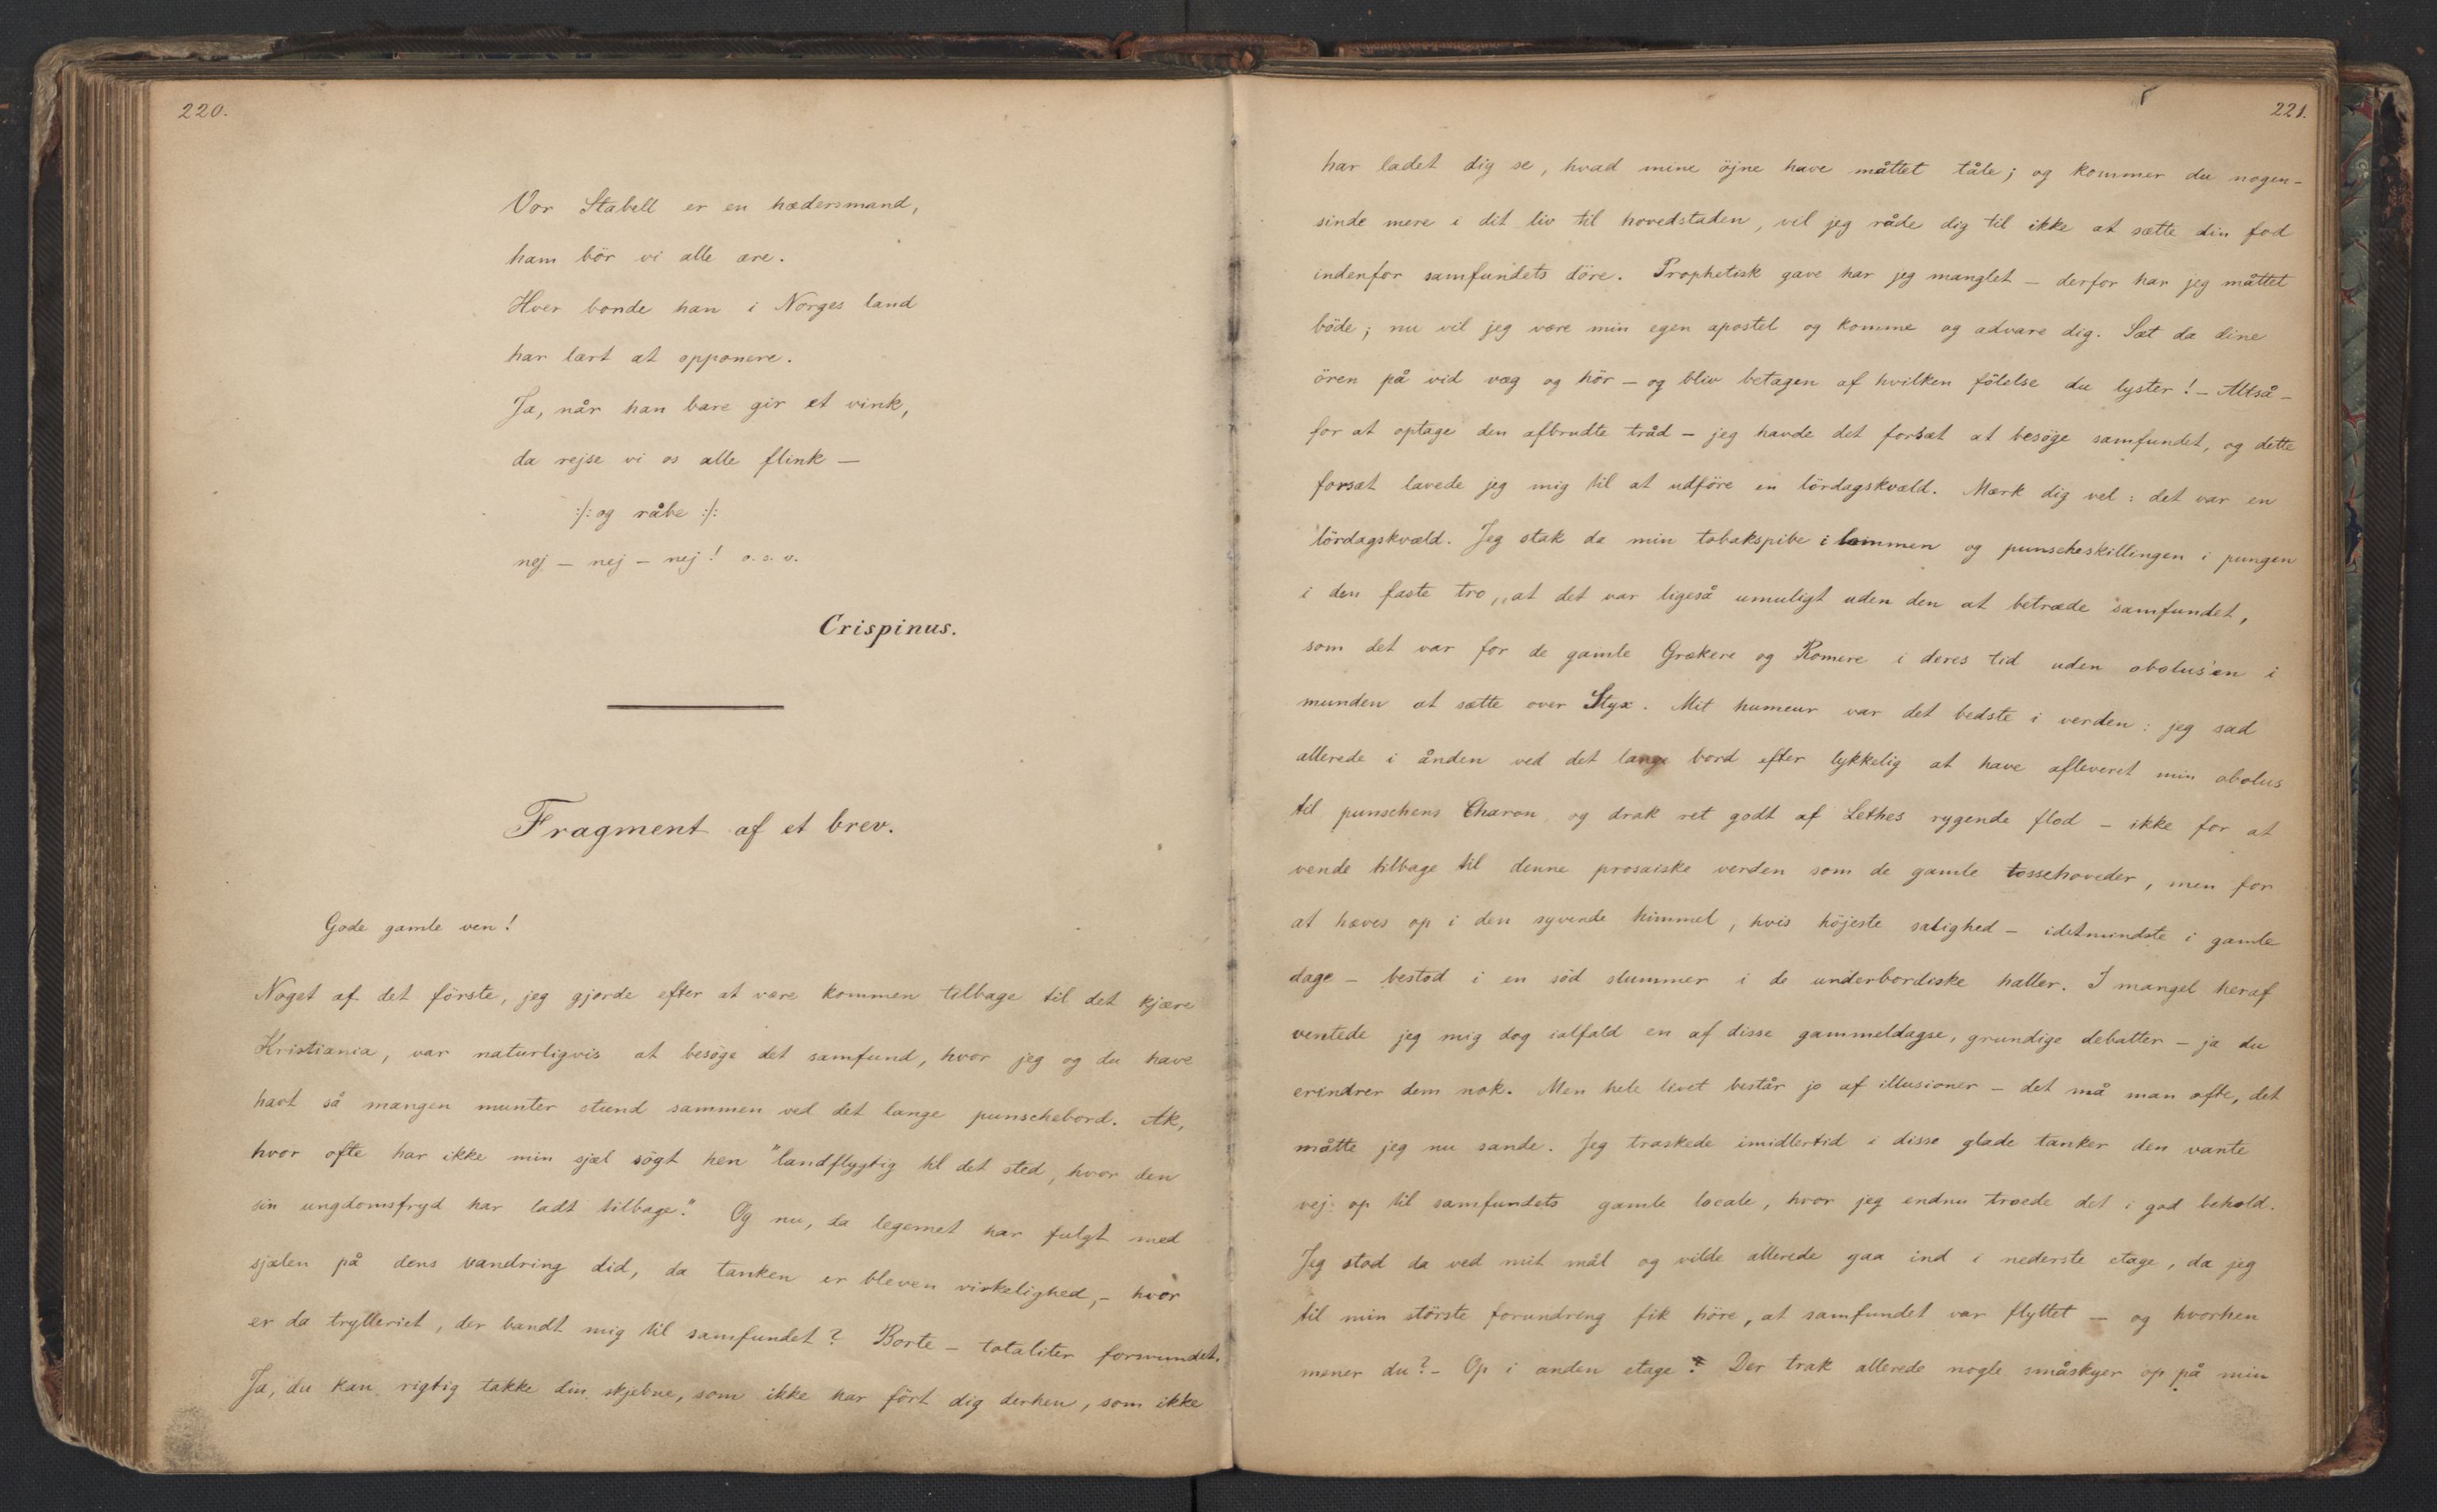 220.
Vor Stabell er en hædersmand,
ham bör vi alle ære.
Hver bonde han i Norges land
har lært at opponere.
Ja, når han bare gir et vink,
da rejse vi os alle flink —
:/: og råbe :/:
nej — nej — nej! o. s. v.
Crispinus.
Fragment af et brev.
Gode gamle ven!
Noget af det förste, jeg gjorde efter at være kommen tilbage til det kjære
Kristiania, var naturligvis at besöge det samfund, hvor jeg og du have
havt så mangen munter stund sammen ved det lange punschebord. Ak,
hvor ofte har ikke min sjæl sögt hen "landflygtig til det sted, hvor den
sin ungdomsfryd har ladt tilbage." Og nu, da legemet har fulgt med
sjælen på dens vandring did, da tanken er bleven virkelighed, – hvor
er da trylleriet, der bandt mig til samfundet? Borte – totaliter forsvundet.
Ja, du kan rigtig takke din skjebne, som ikke har fört dig derhen, som ikke
221.
har ladet dig se, hvad mine öjne have måttet tåle; og kommer du nogen-
sinde mere i dit liv til hovedstaden, vil jeg råde dig til ikke at sætte din fod
indenfor samfundets döre. Prophetisk gave har jeg manglet – derfor har jeg måttet
böde; nu vil jeg være min egen apostel og komme og advare dig. Sæt da dine
ören på vid væg og hör – og bliv betagen af hvilken fölelse du lyster! – Altså –
for at optage den afbrudte tråd – jeg havde det forsæt at besöge samfundet, og dette
forsæt lavede jeg mig til at udföre en lördagskvæld. Mærk dig vel: det var en
lördagskvæld. Jeg stak da min tobakspibe i lommen og punscheskillingen i pungen
i den faste tro, at det var ligeså umuligt uden den at betræde samfundet,
som det var for de gamle Grækere og Romere i deres tid uden obolus'en i
munden at sætte over Styx. Mit humeur var det bedste i verden: jeg sad
allerede i ånden ved det lange bord efter lykkelig at have afleveret min obolus
til punschens Charon og drak ret godt af Lethes rygende flod – ikke for at
vende tilbage til denne prosaiske verden som de gamle tossehoveder, men for
at hæves op i den syvende himmel, hvis höjeste salighed – idetmindste i gamle
dage – bestod i en söd slummer i de underbordiske haller. I mangel heraf
ventede jeg mig dog ialfald en af disse gammeldagse, grundige debatter – ja du
erindrer dem nok. Men hele livet består jo af illusioner – det må man ofte, det
måtte jeg nu sande. Jeg traskede imidlertid i disse glade tanker den vante
vej op til samfundets gamle locale, hvor jeg endnu troede det i god behold.
Jeg stod da ved mit mål og vilde allerede gaa ind i nederste etage, da jeg
til min störste forundring fik höre, at samfundet var flyttet – og hvorhen
mener du? – Op i anden etage! Der trak allerede nogle småskyer op på min